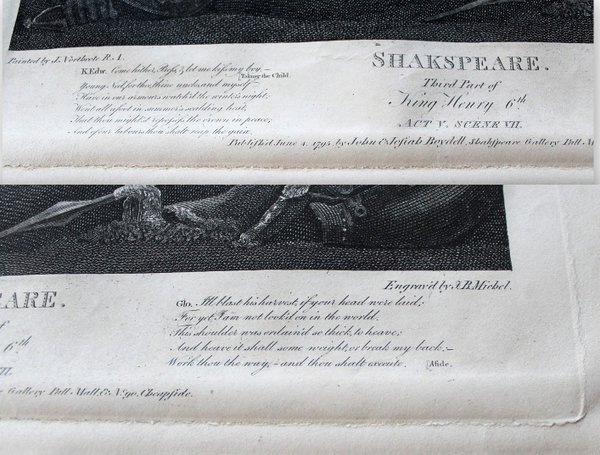 Painted by J. Northcote R.A.
SHAKSPEARE.
Third Part of
King Henry 6th
ACT V. SCENE VII.
K.Edw. Come hither, Bess, & let me kiss my boy.—
[Taking the Child.
Young Ned, for thee, thine uncles, and myself
Have in our armours watch'd the winter's night;
Went all afoot in summer's scalding heat,
That thou might'st repossess the crown in peace;
And of our labours thou shalt reap the gain.
Publish'd June 4, 1795, by John & Josiah Boydell, Shakspeare Gallery Pall Ma
Engrav'd by J.B. Michel.
EARE.
of
6th
VII.
Glo. I'll blast his harvest, if your head were laid;
For yet I am not look'd on in the world.
This shoulder was ordain'd so thick, to heave;
And heave it shall some weight, or break my back.—
Work thou the way,—and thou shalt execute.
[Aside.
e Gallery Pall Mall, & No. 90, Cheapside.